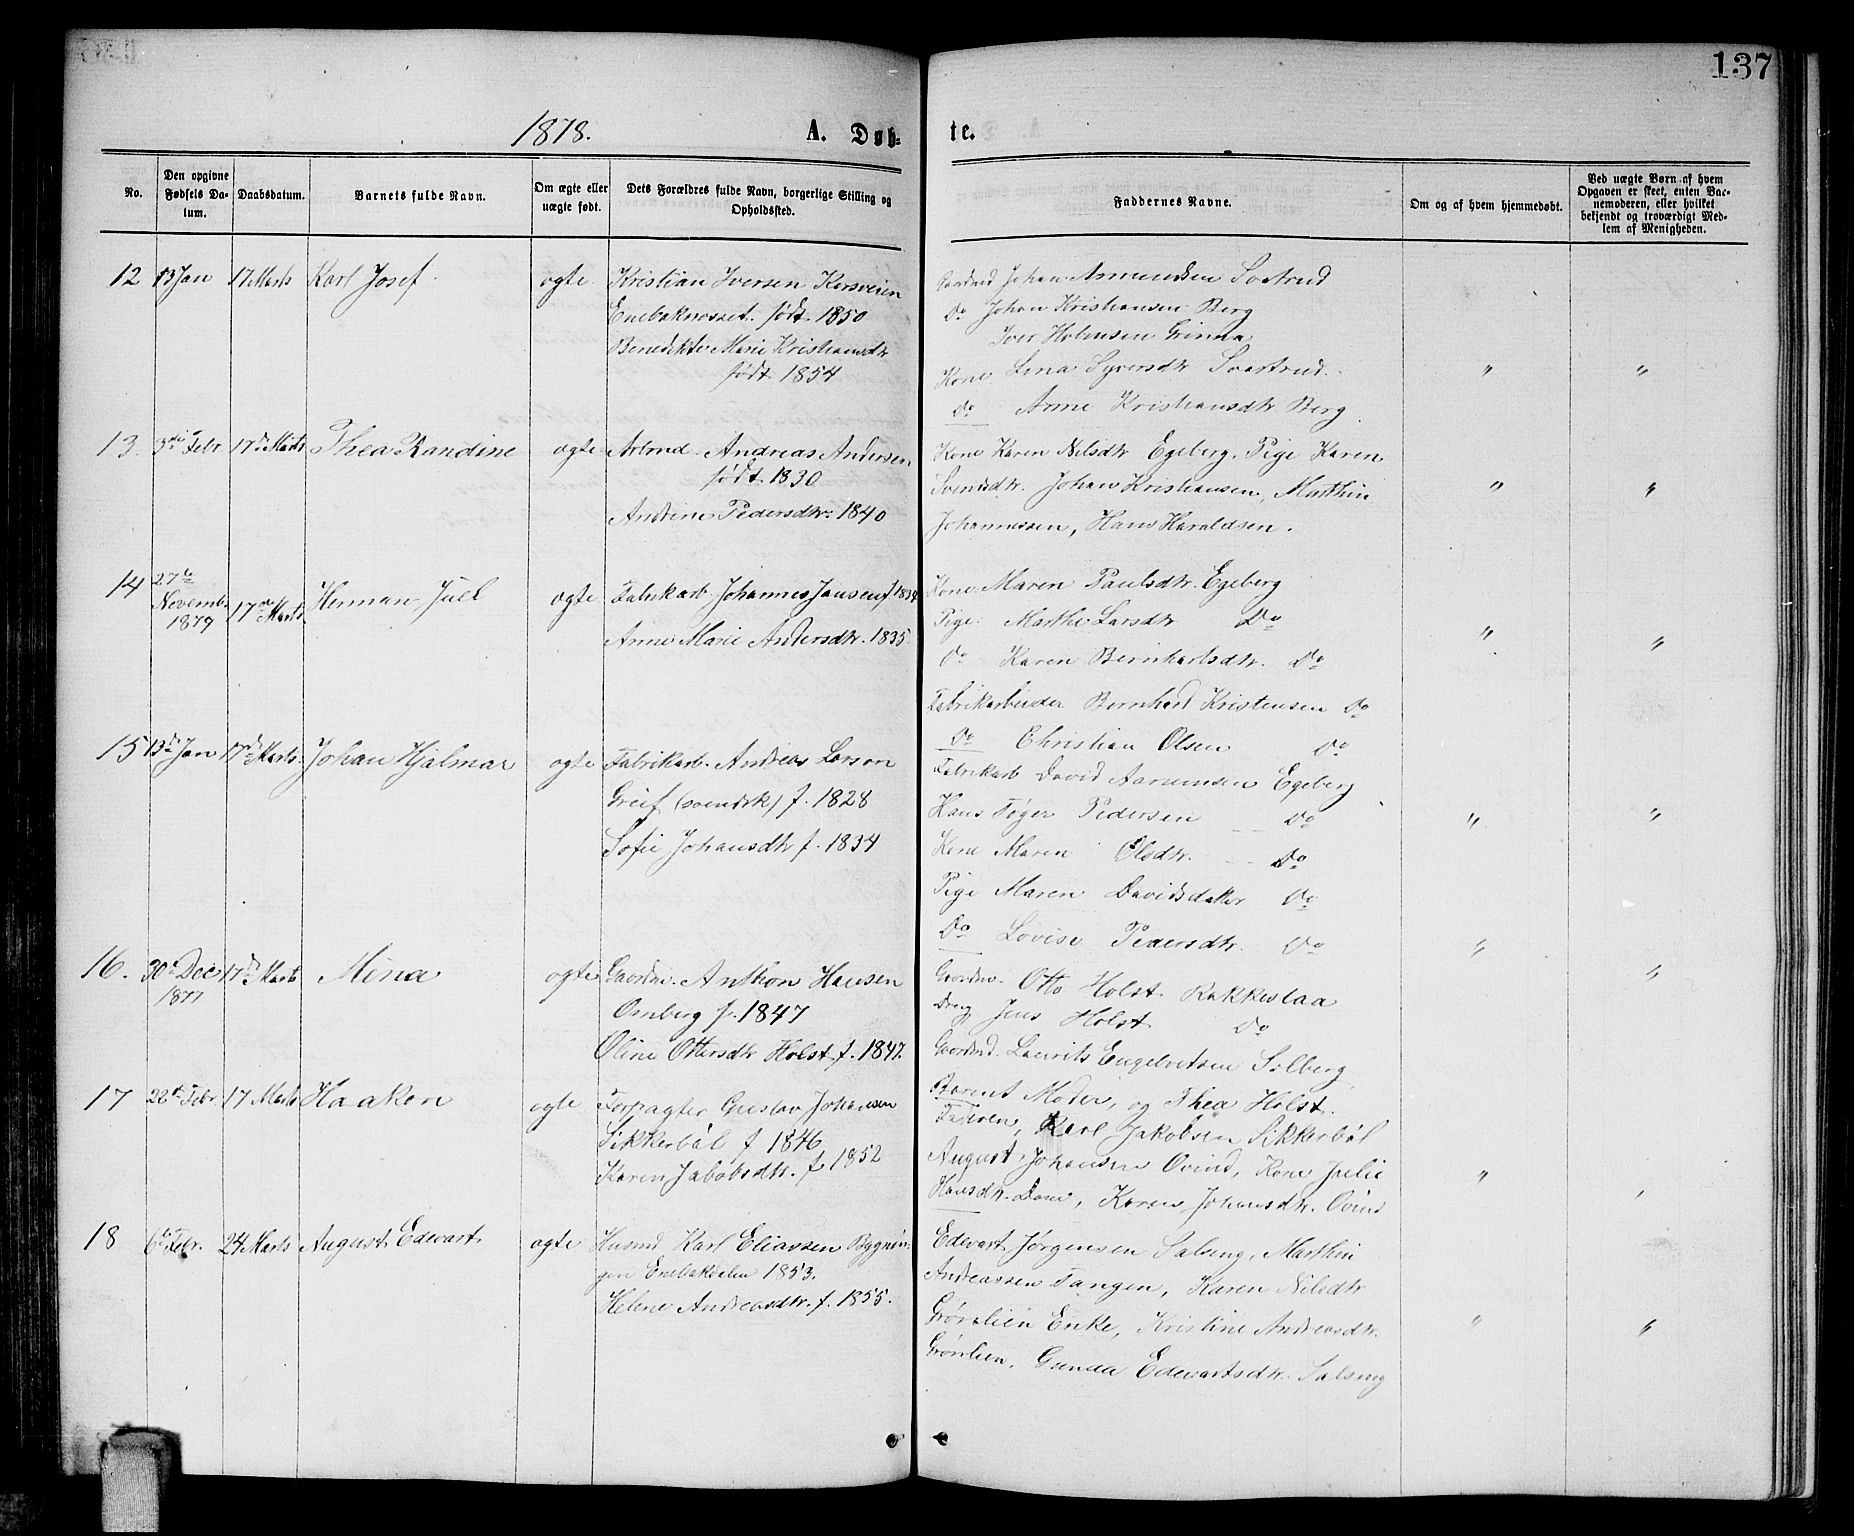 137
1878. A. Døb- te.
No.
Den opgivne Fødsels Da- tum.
Daabsdatum.
Barnets fulde Navn.
Om ægte eller uægte født.
Dets Forældres fulde Navn, borgerlige Stilling og Opholdssted.
Faddernes Navne.
Om og af hvem hjemmedøbt.
Ved uægte Børn af hvem Opgaven er skeet, enten Bar- nemoderen, eller hvilket bekjendt og troværdigt Med- lem af Menigheden.
12 13 Jan 17 Marts Karl Josef. ægte
Kristian Iversen Kersveien
Enebaknesset. født. 1850
Benedikte Marie Kristiansdtr
født 1854
Johan Asmundsen Svartrud
Do Johan Kristiansen Berg
Iver Holmsen Grinna
Kone Lina Syversdtr Svartrud. " "
Do Anne Kristiansdtr Berg
13. 3die Febr 17de Marts Thea Randine ægte
Arbmd. Andreas Andersen
født 1830
Andrine Pedersdtr. 1840
Kone Karen Nilsdtr Egeberg. Pige Karen
Svensdtr. Johan Kristiansen, Marthin " "
Johannessen, Hans Haraldsen.
14 27de Novemb. 1879 17de Marts Herman Juel ægte
Fabrikarb Johannes Jansen f 1834
Anne Marie Andersdtr. 1835
Kone Maren Paulsdtr. Egeberg
Pige Marthe Larsdtr Do " "
Do Karen Bernhartsdtr. Do
Fabrikarbeider Bernhard Kristensen Do
Do Christian Olsen Do
15 13de Jan 17de Marts Johan Hjalmar ægte
Fabrikarb. Andreas Larson
Greif (svendsk) f. 1828
Sofie Johansdtr f. 1834
Fabrikarb David Aamundsen Egeberg
Hans Tøger Pedersen Do " "
Kone Maren Olsdtr. Do
Pige Maren Davidsdatter Do
Do Lovise Pedersdtr. Do
16. 30te Dec 1877 17de Marts Mina ægte
Gaardm. Anthon Hansen
Omberg f. 1847
Oline Ottersdtr Holst f. 1847.
Gaardm. Otto Holst Rakkestaa
Dreng Jens Holst Do " "
Gaardmd. Laurits Engebretsen Solberg,
Barnets Moder, og Thea Holst.
17 22de Febr 17 Marts Haaken ægte
Forpagter Gustav Johansen
Sikkerbøl f 1846
Karen Jakobsdtr. f 1852
Faderen, Karl Jakobsen Sikkerbøl
August Johansen Ovind, Kone Julie "
Hansdtr. Dom, Karen Johansdtr. Ovind
18 6te Febr. 24 Marts August Edevart ægte
Husmd Karl Eliassen Bygnin-
gen Enebakdalen 1853.
Helene Andreasdtr. f. 1855.
Edevart Jørgensen Salsing, Marthin
Andreassen Tangen, Karen Nilsdtr
Grønlien Enke, Kristine Andreasdtr. " "
Grønlien. Gunda Edevartsdtr. Salsing